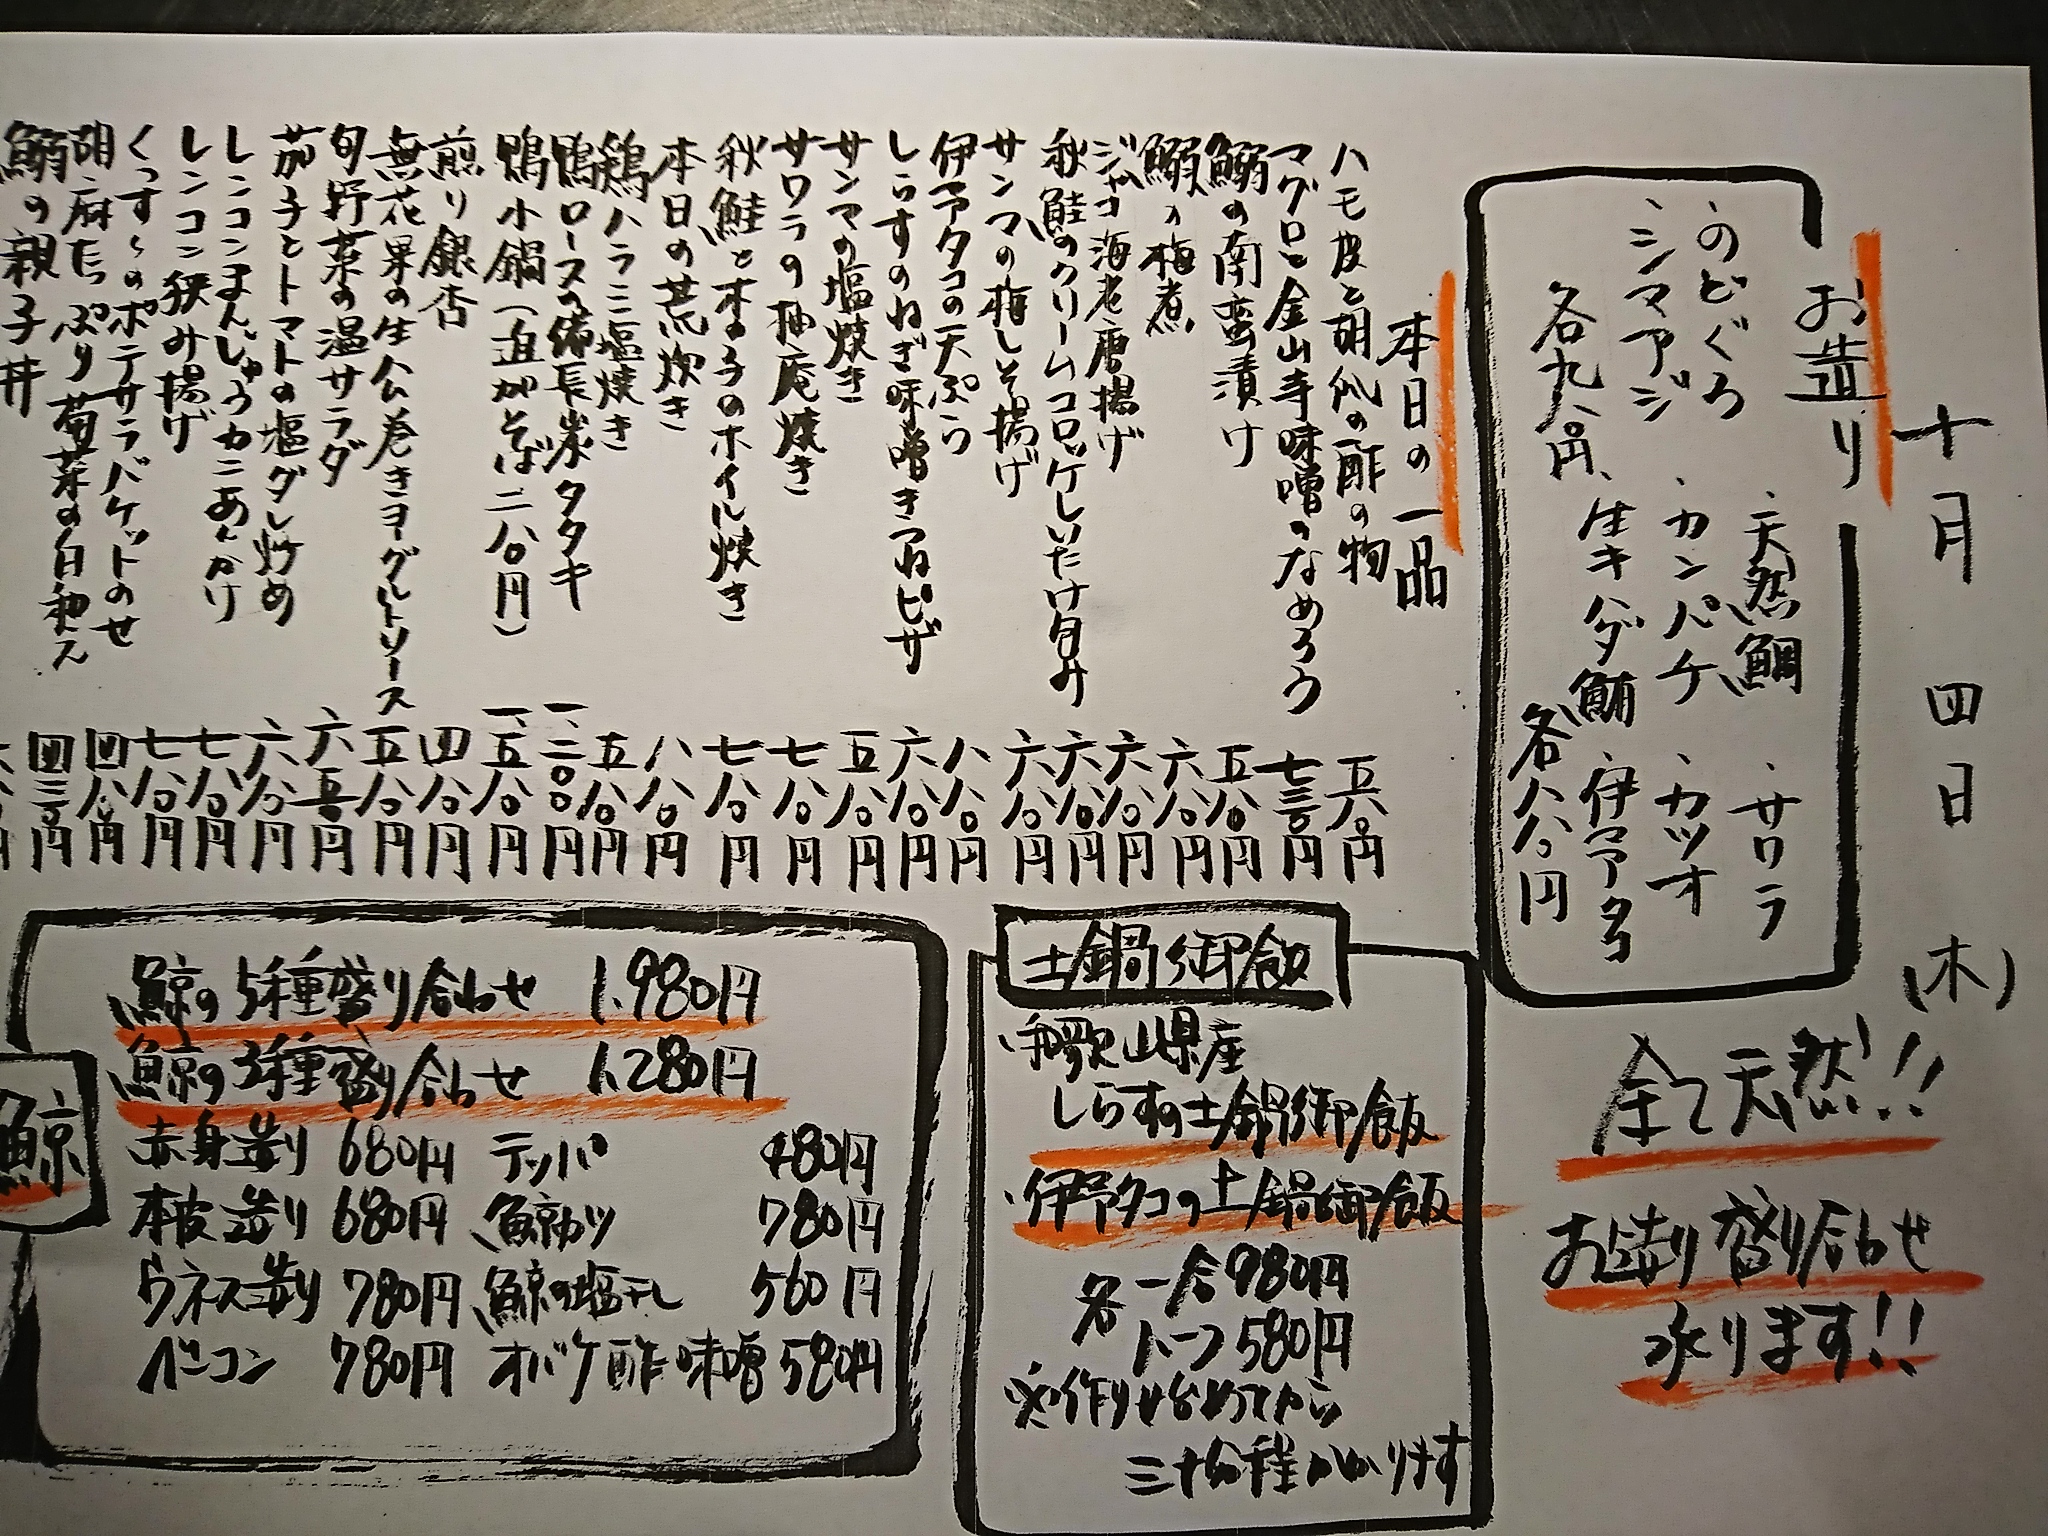 十月 四日 (木)
お造り
・のどぐろ
・シマアジ
各九八〇円
・天然鯛 ・サワラ
・カンパチ ・カツオ
・生キハダ鮪 ・伊予タコ
各八八〇円
全て天然!!
お造り盛り合わせ
承ります!!
本日の一品
ハモ皮と胡瓜の酢の物 五八〇円
マグロと金山寺味噌のなめろう 七三〇円
鰯の南蛮漬け 五八〇円
鰯の梅煮 六八〇円
ジャコ海老唐揚げ 六八〇円
秋鮭のクリームコロッケしいたけ包み 六八〇円
サンマの梅しそ揚げ 六八〇円
伊予タコの天ぷら 八八〇円
しらすのねぎ味噌きつねピザ 六八〇円
サンマの塩焼き 五八〇円
サワラの柚庵焼き 七八〇円
秋鮭と木の子のホイル焼き 七八〇円
本日の荒炊き 八八〇円
鶏ハラミ塩焼き 五八〇円
鴨ロースの備長炭タタキ 一、二〇〇円
鴨小鍋(追加そば二八〇円) 一、五八〇円
煎り銀杏 四八〇円
無花果の生ハム巻きヨーグルトソース 五八〇円
旬野菜の温サラダ 六五〇円
茄子とトマトの塩ダレ炒め 六八〇円
レンコンまんじゅうカニあんかけ 七八〇円
レンコン挟み揚げ 七八〇円
くっすんのポテサラバケットのせ 四八〇円
胡麻たっぷり菊菜の白和え 四三〇円
鰯の親子丼
土鍋御飯
・和歌山県産
しらすの土鍋御飯
・伊予タコの土鍋御飯
各 一合980円
ハーフ580円
※作り始めてから
三十分程かかります
鯨
・鯨の5種盛り合わせ 1,980円
・鯨の3種盛り合わせ 1,280円
赤身造り 680円 テッパ 480円
本皮造り 680円 鯨カツ 780円
ウネス造り 780円 鯨の塩干し 560円
ベーコン 780円 オバケ酢味噌 580円